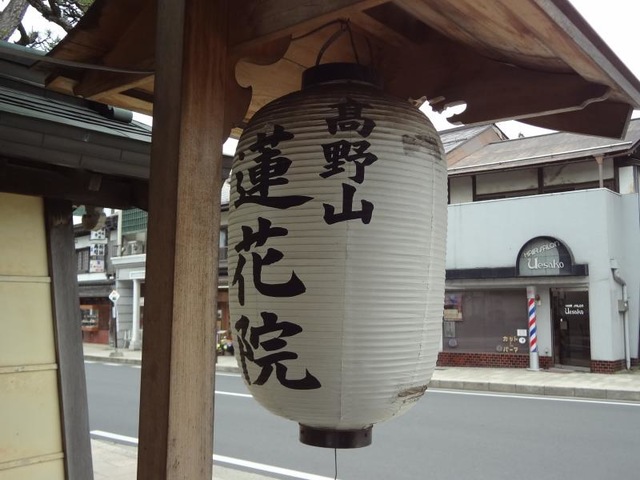 高野山
蓮花院
HAIR SALON
Uesako
HAIR SALON
Uesako
カット
パーマ